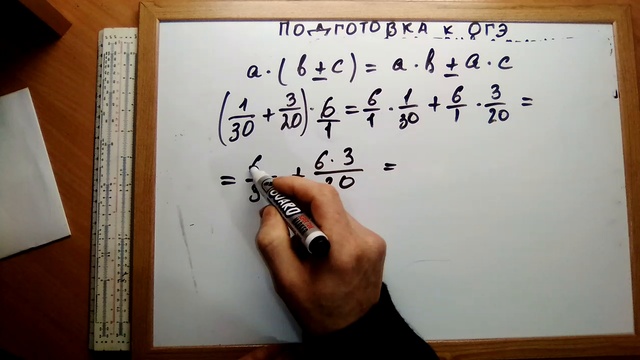 ПОДГОТОВКА К ОГЭ
a · (b ± c) = a · b ± a · c
(1/30 + 3/20) · 6/1 = 6/1 · 1/30 + 6/1 · 3/20 =
= 6/3 + 6 · 3/20 =